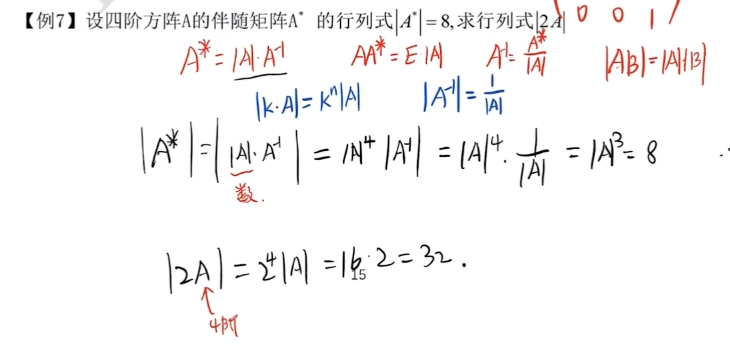 【例7】设四阶方阵A的伴随矩阵A* 的行列式|A*|=8,求行列式|2A| 0 0 1
A*=|A|·A⁻¹ AA*=E·|A| A⁻¹=A*/|A| |AB|=|A||B|
|k·A|=kⁿ|A| |A⁻¹|=1/|A|
|A*|=||A|·A⁻¹|=|A|⁴|A⁻¹|=|A|⁴·1/|A|=|A|³=8
数.
|2A|=2⁴|A|=16·2=32.
15
4阶